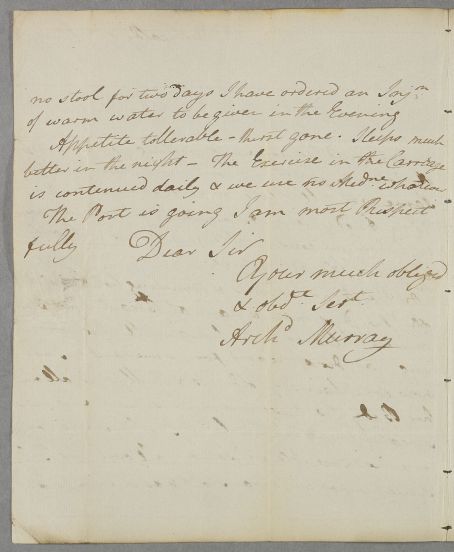 no stool for two days I have ordered an Injn
of warm water to be given in the Evening
Appetite tollerable - thirst gone. Sleeps much
better in the night - The Exercise in the Carriage
is continued daily & we use no Medne whatever
The Post is going I am most Respect
fully Dear Sir
Your much obliged
& obdt Sert
Archd Murray